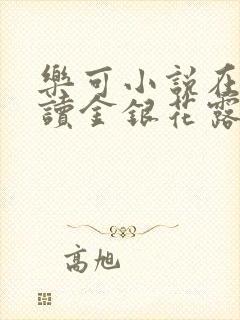 樂可小說在
讀金銀花露
高旭